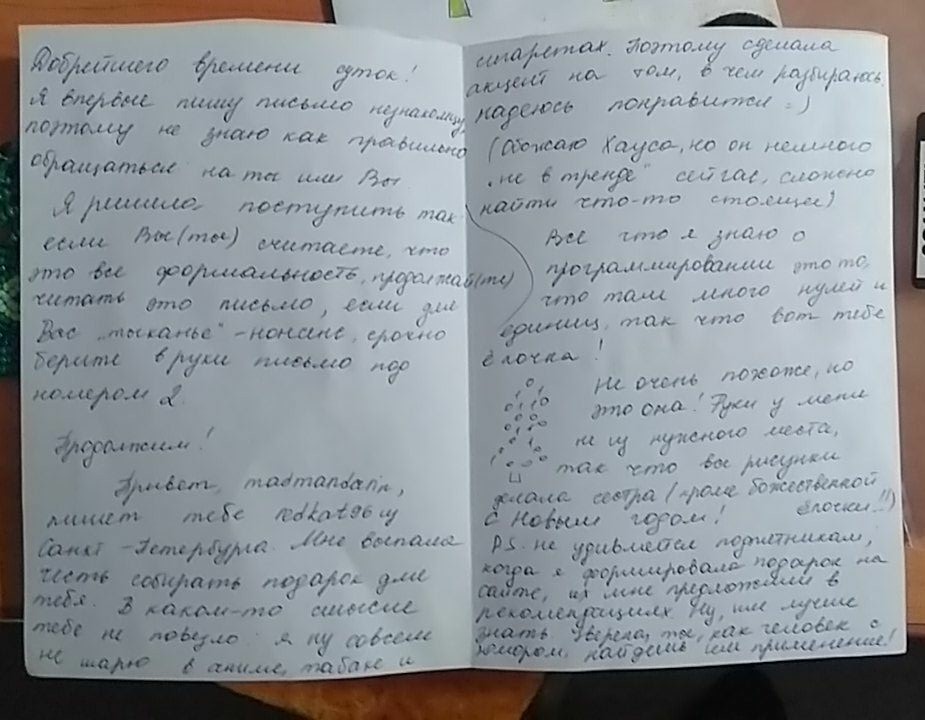 Добрейшего времени суток!
Я впервые пишу письмо незнакомцу,
поэтому не знаю как правильно
обращаться на ты или Вы
Я решила поступить так
если Вы(ты) считаете, что
это все формальность, продолжай(те)
читать это письмо, если для
Вас "тыканье" - нонсенс, срочно
берите в руки письмо под
номером 2.
Продолжим!
Привет, madmandarin,
пишет тебе redkat96 из
Санкт-Петербурга. Мне выпала
честь собирать подарок для
тебя. В каком-то смысле
тебе не повезло: я ну совсем
не шарю в аниме, табаке и
сигаретах. Поэтому сделала
акцент на том, в чем разбираюсь.
надеюсь понравится =)
(Обожаю Хауса, но он немного
"не в тренде" сейчас, сложно
найти что-то стоящее)
Все что я знаю о
программировании это то,
что там много нулей и
единиц, так что вот тебе
ёлочка!
Не очень похоже, но
это она! Руки у меня
не из нужного места,
так что все рисунки
делала сестра (кроме божественной
ёлочки!!)
С Новым годом!
P.S. не удивляйся подчетникам,
когда я формировала подарок на
сайте, их мне предложили в
рекомендациях. Ну, им лучше
знать. Уверена, ты, как человек с
юмором, найдешь им применение!